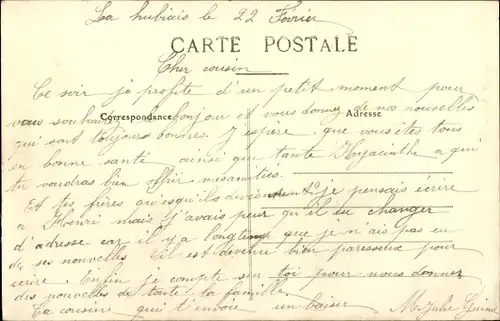 La hubiais le 22 Février
CARTE POSTALE
Cher cousin
Ce soir je profite d'un petit moment pour
vous souhaiter bonjour et vous donner de nos nouvelles
Correspondance
Adresse
qui sont toujours bonnes. J'espère que vous êtes tous
en bonne santé ainsi que tante Hyacinthe a qui
tu voudras bien offrir mes amitiés
Et tes frères qu'esqu'ils deviennent je pensais écrire
a Henri mais j'avais peur qu'il eu changer
d'adresse car il y a longtemp que je n'ais pas eu
de ses nouvelles il est devenu bien paresseux pour
écrire. Enfin je compte sur toi pour nous donner
des nouvelles de toute la famille.
Ta cousine qui t'envoie un baiser M. Julie